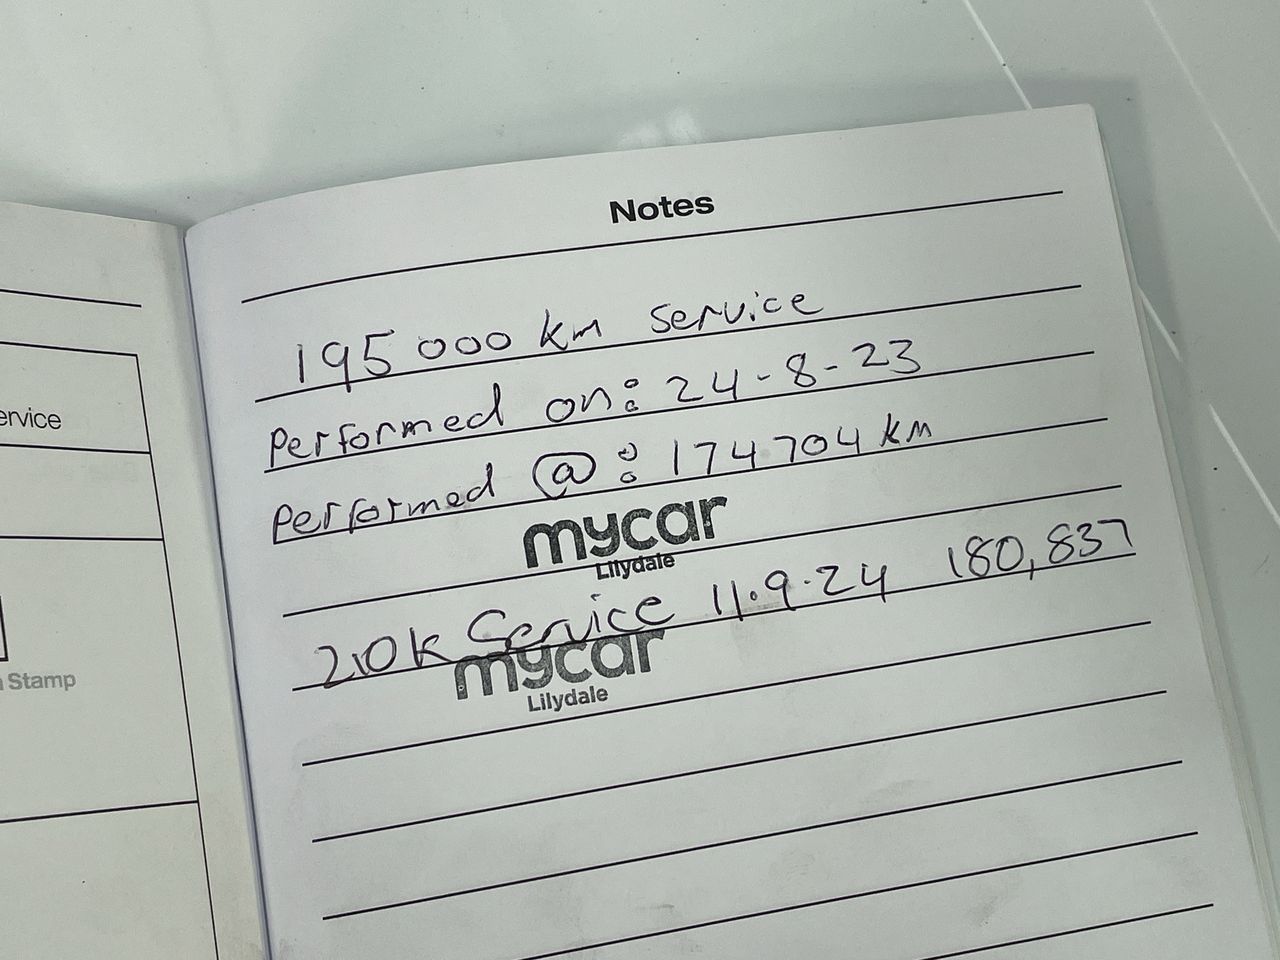 Notes
195000 km service
Performed on: 24-8-23
Performed @: 174704 km
mycar
Lilydale
20k Service 11.9.24 180,837
mycar
Lilydale
ervice
Stamp